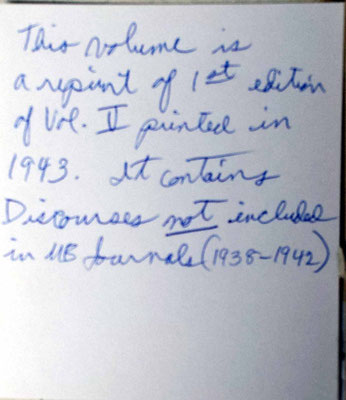 This volume is
a reprint of 1st edition
of Vol. II printed in
1943. It contains
Discourses not included
in MB Journals (1938-1942)